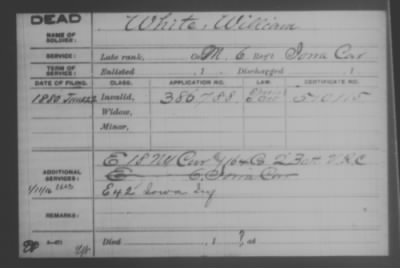 DEAD
White, William
NAME OF SOLDIER:
SERVICE: Late rank, Co. M, 6 Reg't Iowa Cav
TERM OF SERVICE: Enlisted , 1 Discharged , 1
DATE OF FILING. CLASS. APPLICATION NO. LAW. CERTIFICATE NO.
1880 Invalid, 386788
Widow,
Minor,
ADDITIONAL SERVICES:
E 18 NY Cav
E 6. Iowa Cav
E 42 Iowa Inf
REMARKS:
Died , 1 ? at